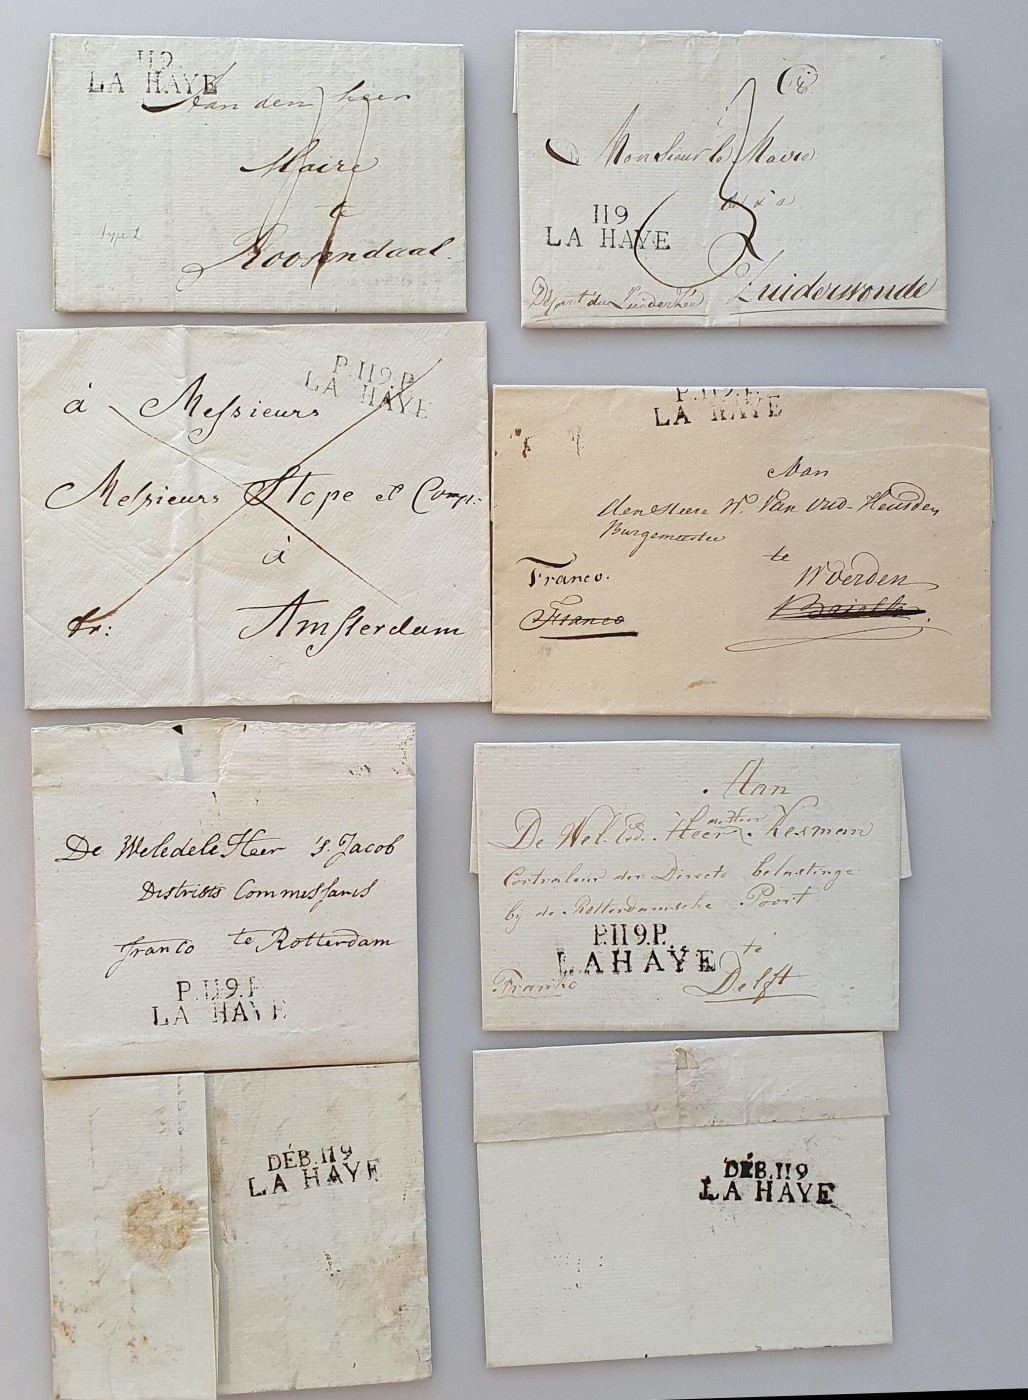 119
LA HAYE
Aan den heer
Maire
te
Roosendaal
Type 2
Monsieur le Maire
à
119
LA HAYE
Zuiderwoude
3
Dépt du Zuiderzée
P.119.P.
LA HAYE
à Messieurs
Messieurs Hope et Comp:
à
fr: Amsterdam
P.119.P.
LA HAYE
Aan
den Heere W. Van Oud-Heusden
Burgemeester
te
Franco. Woerden
Franco
De Weledele Heer 's. Jacob
Districts Commissaris
franco te Rotterdam
P.119.P
LA HAYE
Aan
De Wel. Ed. Heer Kerman
Controleur der Directe belastinge
bij de Rotterdamsche Poort
P.119.P.
LA HAYE
te
Franko Delft
DÉB.119
LA HAYE
DÉB.119
LA HAYE